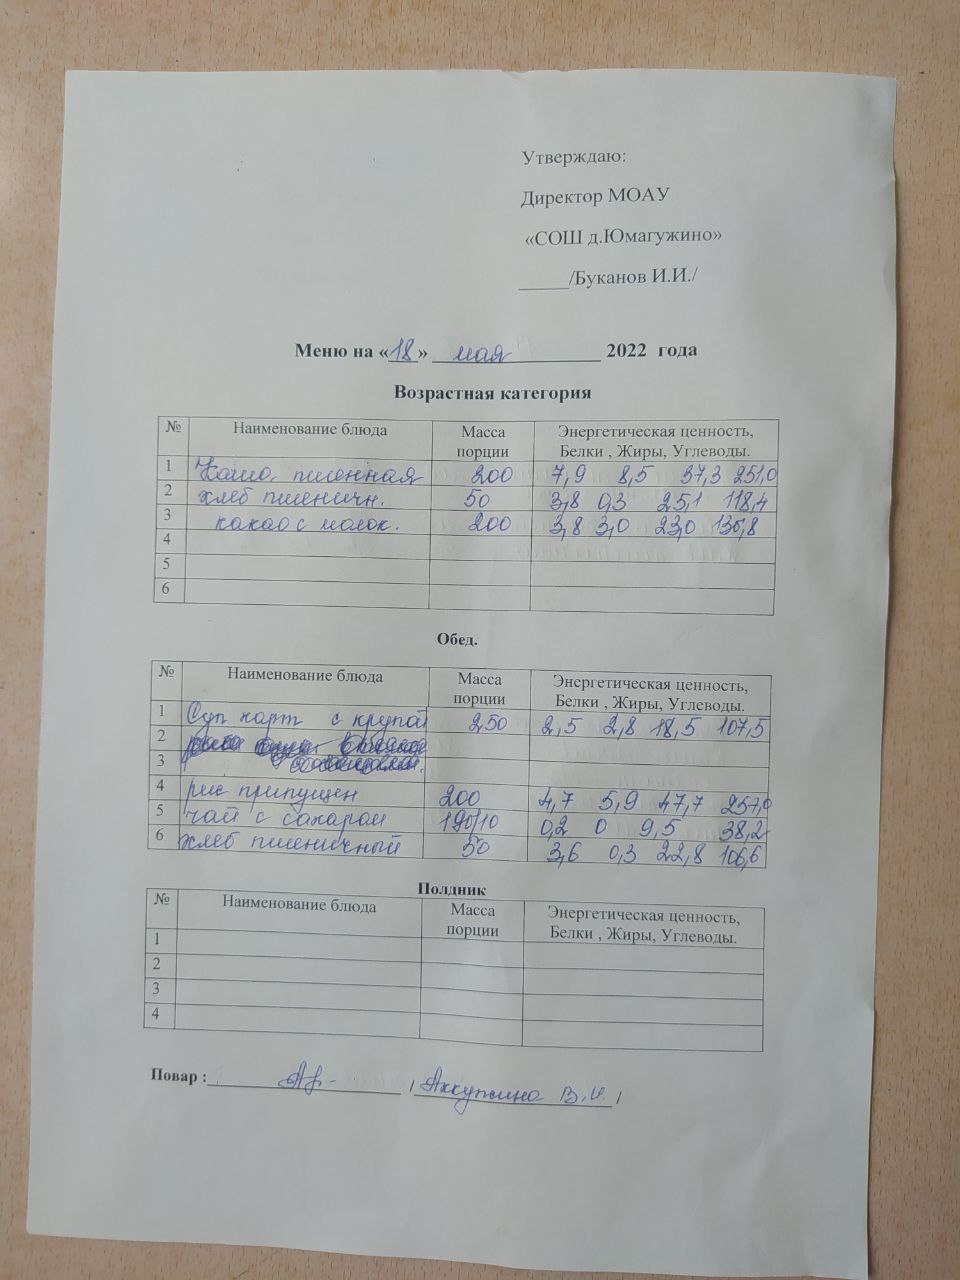 Утверждаю:
Директор МОАУ
«СОШ д.Юмагужино»
_____/Буканов И.И./
Меню на «18» мая 2022 года
Возрастная категория
№ Наименование блюда Масса порции Энергетическая ценность, Белки , Жиры, Углеводы.
1 Каша пшенная 200 7,9 8,5 37,3 251,0
2 хлеб пшеничн. 50 3,8 0,3 25,1 118,4
3 какао с молок. 200 3,8 3,0 23,0 136,8
4
5
6
Обед.
№ Наименование блюда Масса порции Энергетическая ценность, Белки , Жиры, Углеводы.
1 Суп карт с крупой 250 2,5 2,8 18,5 107,5
2
3
4 рис припущен 200 4,7 5,9 47,7 257,0
5 чай с сахаром 190/10 0,2 0 9,5 38,2
6 хлеб пшеничный 50 3,6 0,3 22,8 106,6
Полдник
№ Наименование блюда Масса порции Энергетическая ценность, Белки , Жиры, Углеводы.
1
2
3
4
Повар : / Аккужина В.И. /